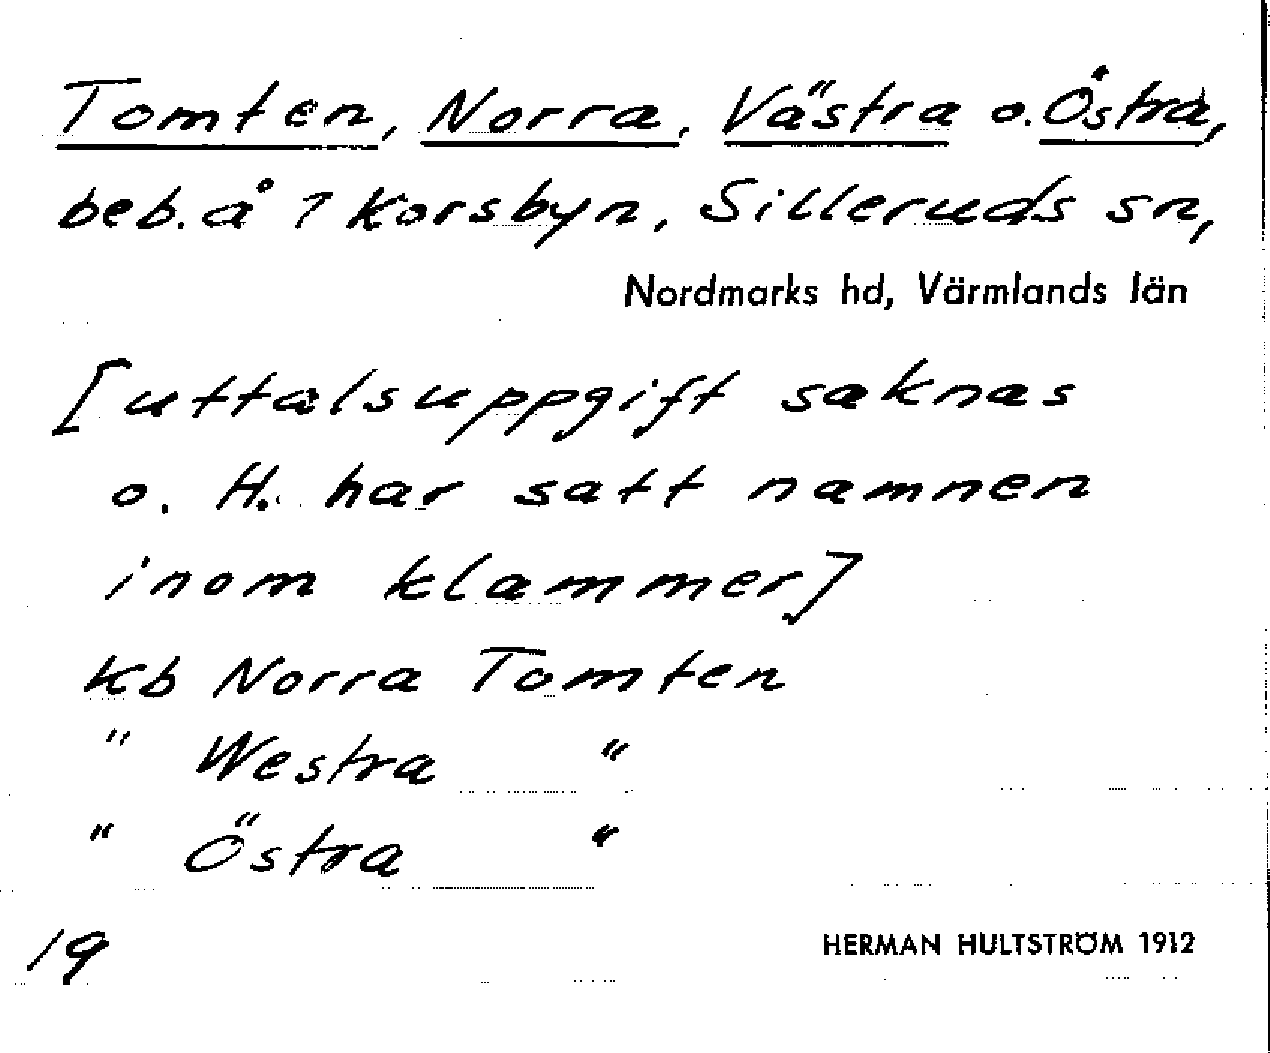 Tomten, Norra, Västra o. Östra,
beb. å 7 Korsbyn, Silleruds sn,
Nordmarks hd, Värmlands län
[uttalsuppgift saknas
o. H. har satt namnen
inom klammer]
kb Norra Tomten
" Westra "
" Östra "
19
HERMAN HULTSTRÖM 1912